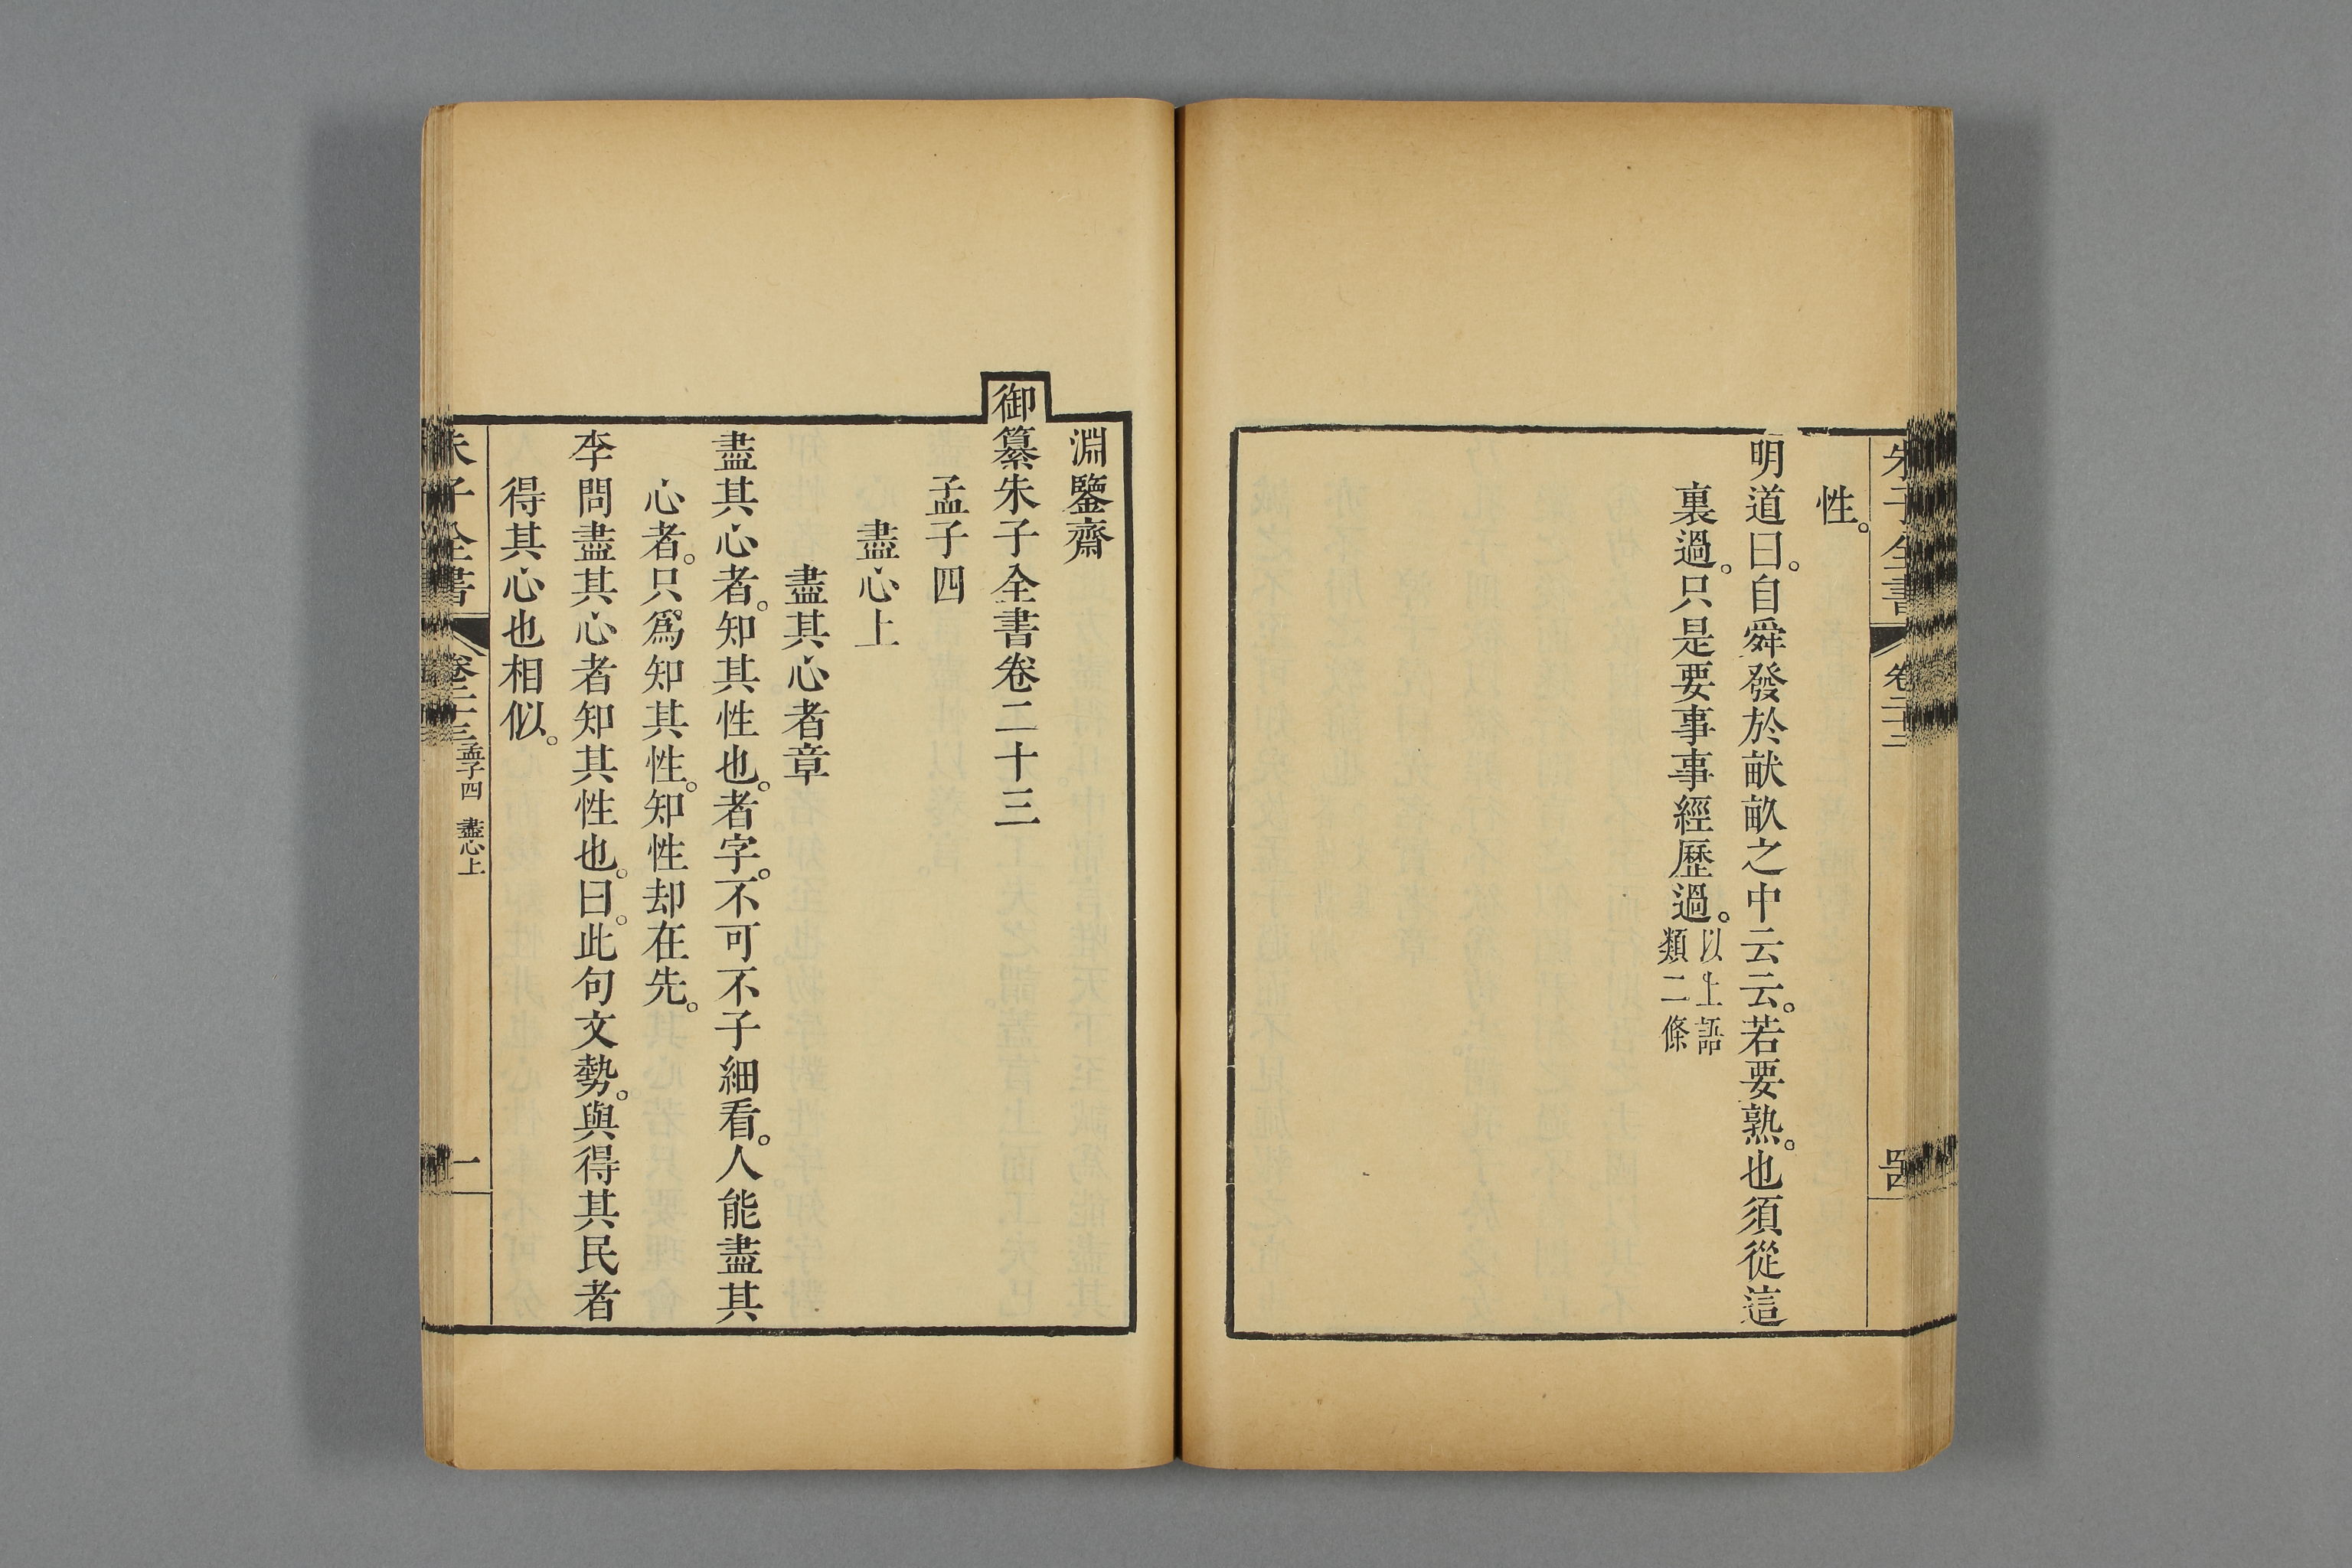 朱子全書 卷二十二
性。
明道曰。自舜發於畎畝之中云云。若要熟。也須從這
裏過。只是要事事經歷過。以上語
類二條
淵鑒齋
御纂朱子全書卷二十三
孟子四
盡心上
盡其心者章
盡其心者。知其性也。者字。不可不子細看。人能盡其
心者。只爲知其性。知性却在先。
李問盡其心者知其性也。曰。此句文勢。與得其民者
得其心也相似。
朱子全書 卷二十三 孟子四 盡心上 一